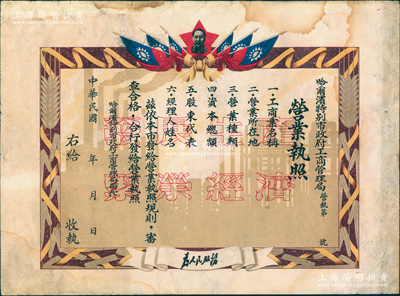 哈爾濱特別市政府工商管理局營執第 號
營業執照
一．工商業名稱
二．營業所在地
三．營業種類
四．資本總額
五．股東代表
六．經理人姓名
茲依本市發給營業執照規則，審
查合格，合行發給營業執照
哈爾濱特別市政府工商管理局
中華民國 年 月 日
右給 收執
繁榮經濟
為人民服務
上海陽明拍賣
上海陽明拍賣